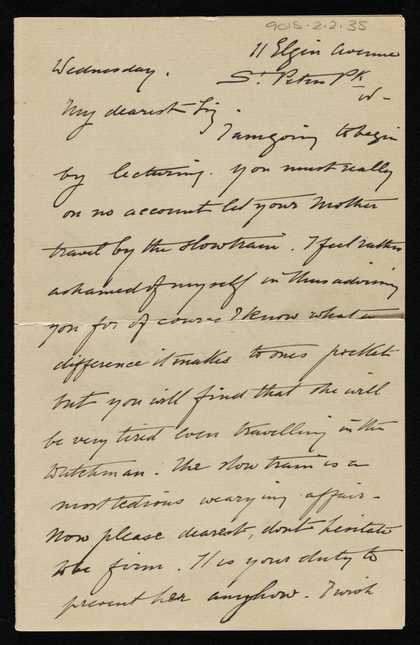 9015-2-2-35
11 Elgin Avenue
Wednesday. St Peters Pk
W-
My dearest
I am going to begin
by lecturing. You must really
on no account let your Mother
travel by the slow train. I feel rather
ashamed of myself in thus advising
you for of course I know what a
difference it makes to ones pocket
but you will find that she will
be very tired even travelling in the
Dutchman. The slow train is a
most tedious wearying affair-
Now please dearest, dont hesitate
to be firm. It is your duty to
prevent her anyhow. I wish